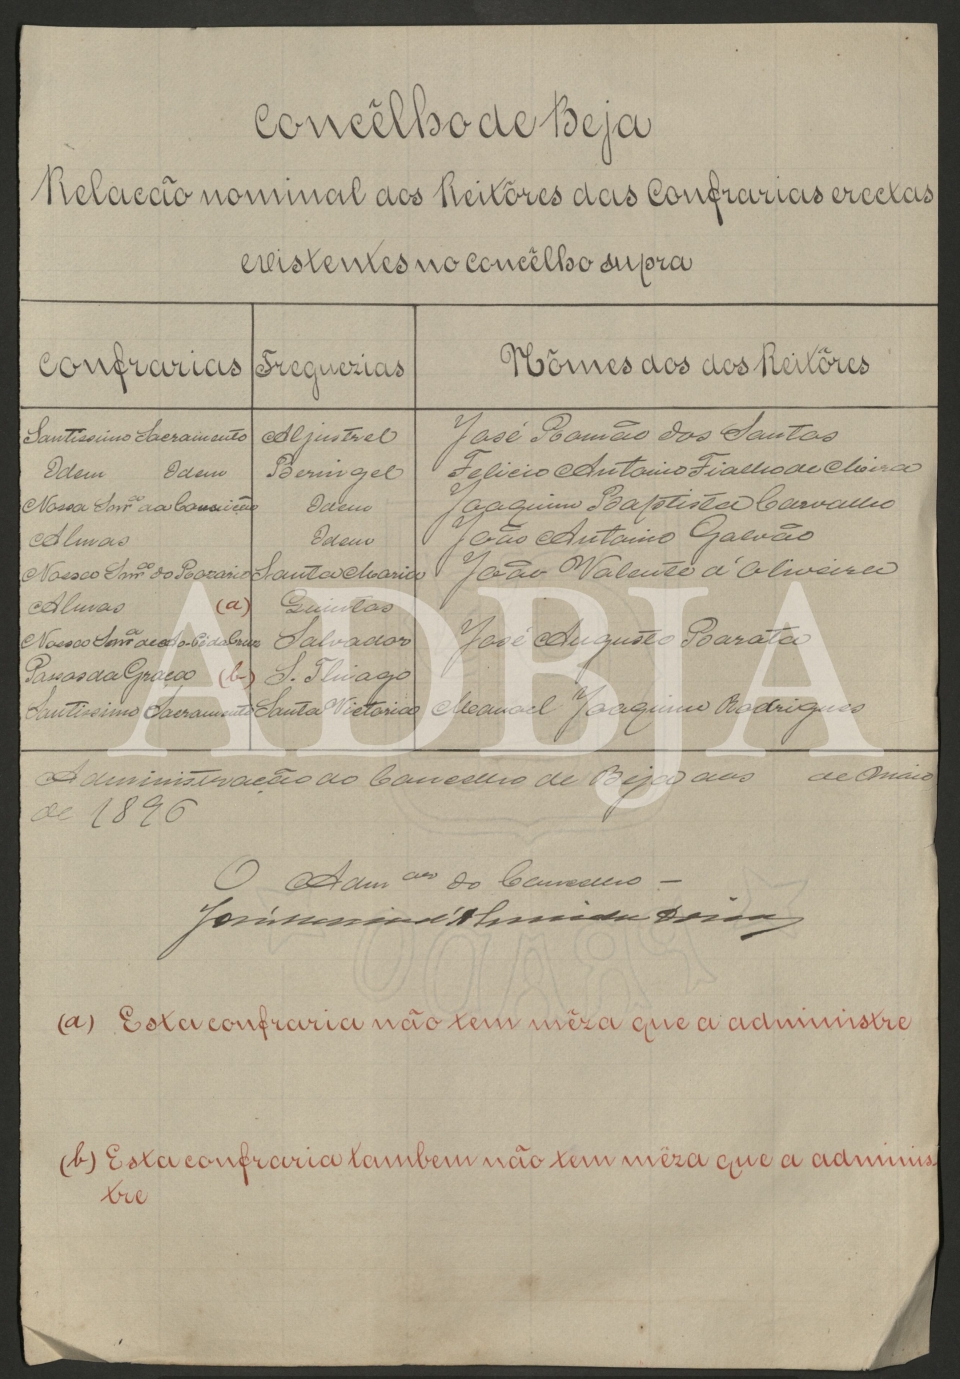 Concêlho de Beja
Relacão nominal dos Reitôres das Confrarias erectas
existentes no concêlho supra
Confrarias Freguezias Nômes dos dos Reitôres
Santissimo Sacramento Aljustrel José Romão dos Santos
Idem Idem Beringel Felicio Antonio Fialho de
Nossa Snrª da Conceição Idem Joaquim Baptista Carvalho
Almas Idem João Antonio Galvão
Nossa Snrª do Rozario Santa Maria João Valente d'Oliveira
Almas (a) Quintos
Nossa Snrª Salvador José Augusto Barata
Passos da Graça (b) S. Thiago
Santissimo Sacramento Santa Victoria Manoel Joaquim Rodrigues
Administração do Concelho de Beja aos de Maio
de 1896
O Adm do Concelho –
(a) Esta confraria não tem mêza que a administre
(b) Esta confraria tambem não tem mêza que a adminis-
tre
ADBJA